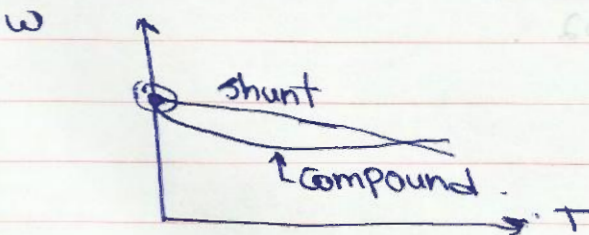 w
shunt
compound.
T